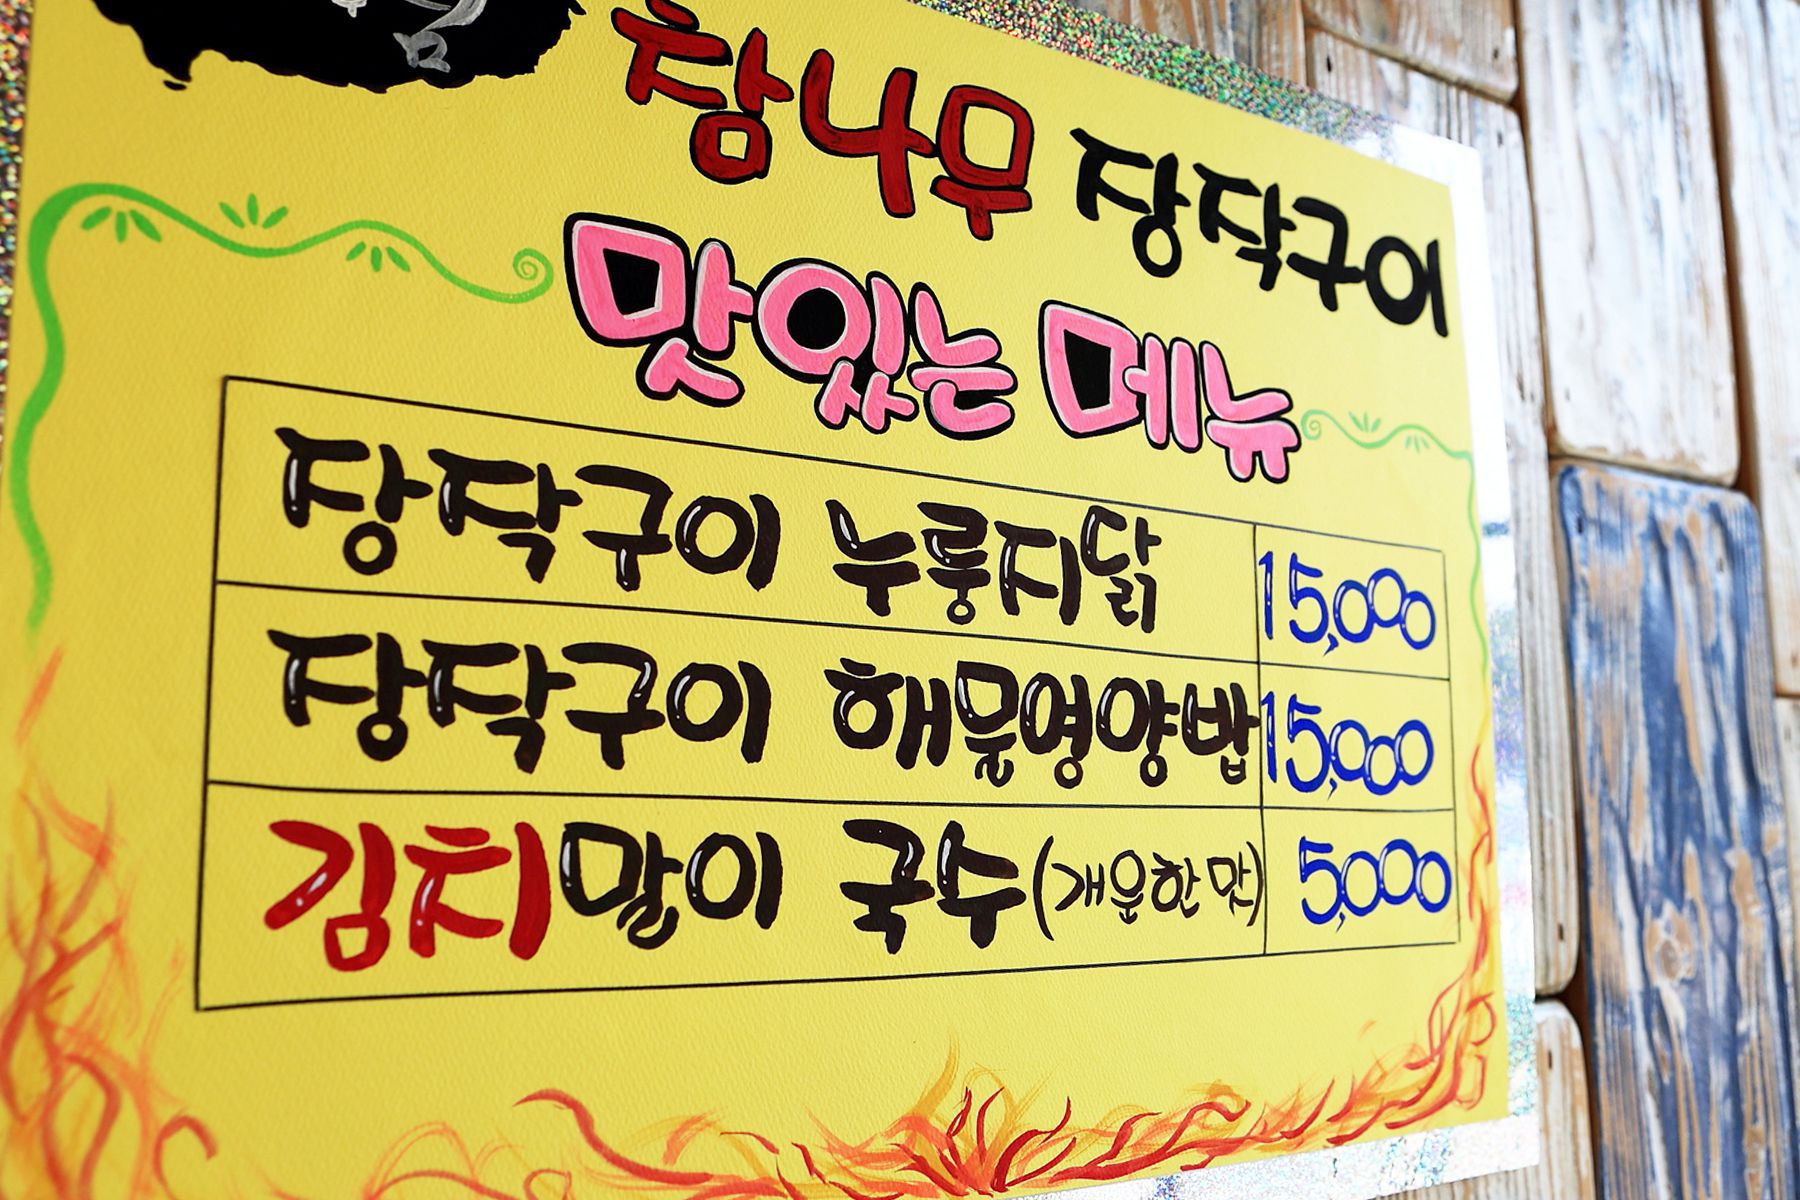 참나무 장작구이
맛있는 메뉴
장작구이 누룽지닭 15,000
장작구이 해물영양밥 15,000
김치말이 국수(개운한 맛) 5,000